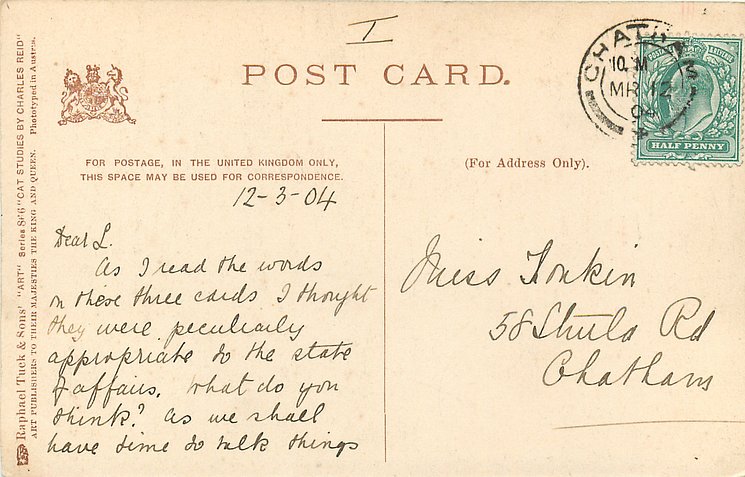 I
POST CARD.
FOR POSTAGE, IN THE UNITED KINGDOM ONLY,
THIS SPACE MAY BE USED FOR CORRESPONDENCE.
(For Address Only).
CHATHAM
MR 12
04
HALF PENNY
12-3-04
Dear L.
As I read the words
on these three cards I thought
they were peculiarly
appropriate to the state
of affairs. What do you
think? As we shall
have time to talk things
Miss Tonkin
58 Rd
Chatham
Raphael Tuck & Sons' "ART" Series 866 "CAT STUDIES BY CHARLES REID"
ART PUBLISHERS TO THEIR MAJESTIES THE KING AND QUEEN. Phototyped in Austria.